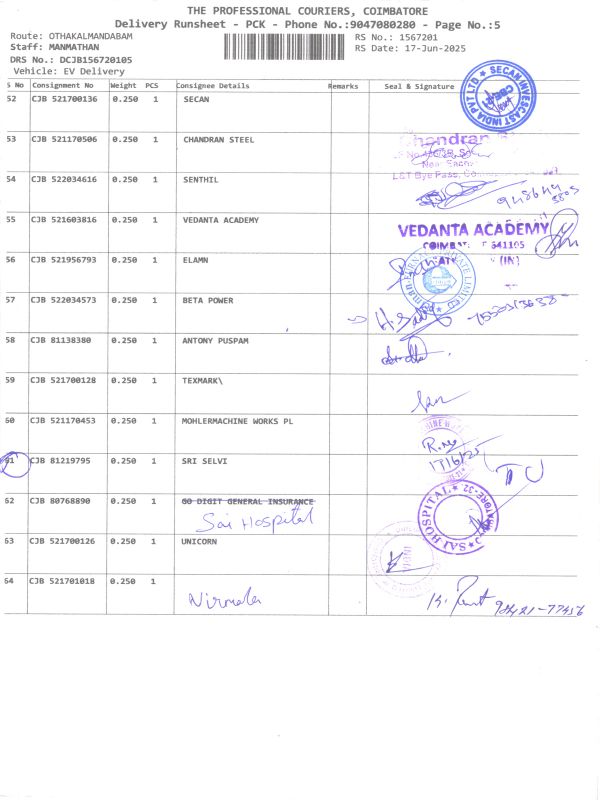 THE PROFESSIONAL COURIERS, COIMBATORE
Delivery Runsheet - PCK - Phone No.:9047080280 - Page No.:5
Route: OTHAKALMANDABAM RS No.: 1567201
Staff: MANMATHAN RS Date: 17-Jun-2025
DRS No.: DCJB156720105
Vehicle: EV Delivery
S No Consignment No Weight PCS Consignee Details Remarks Seal & Signature
52 CJB 521700136 0.250 1 SECAN SECAN INVESCAST INDIA PVT LTD
53 CJB 521170506 0.250 1 CHANDRAN STEEL Chandran
L&T Bye Pass,
54 CJB 522034616 0.250 1 SENTHIL
55 CJB 521603816 0.250 1 VEDANTA ACADEMY VEDANTA ACADEMY
641105
56 CJB 521956793 0.250 1 ELAMN
57 CJB 522034573 0.250 1 BETA POWER
58 CJB 81138380 0.250 1 ANTONY PUSPAM
59 CJB 521700128 0.250 1 TEXMARK\
60 CJB 521170453 0.250 1 MOHLERMACHINE WORKS PL
17/6/25
61 CJB 81219795 0.250 1 SRI SELVI
62 CJB 80768890 0.250 1 GO DIGIT GENERAL INSURANCE
Sai Hospital SAI HOSPITAL
63 CJB 521700126 0.250 1 UNICORN
64 CJB 521701018 0.250 1
Nirmala 98421-77456